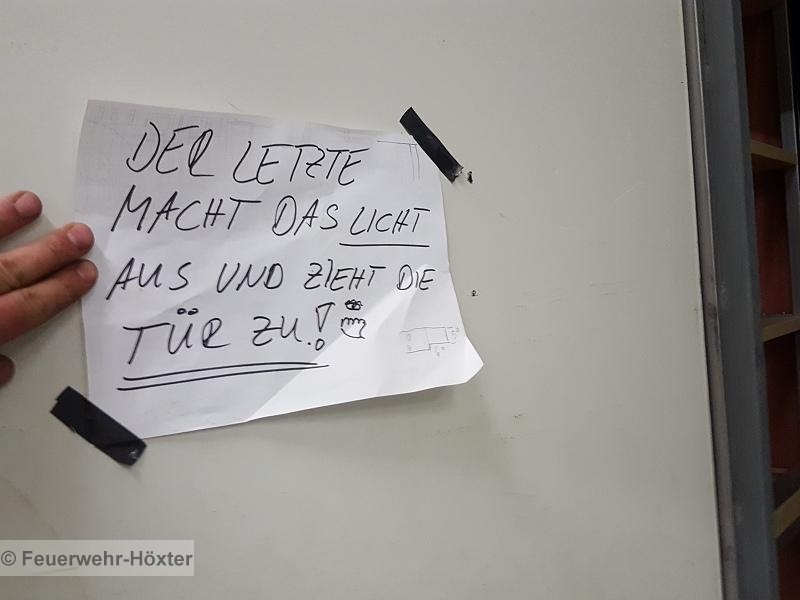 DER LETZTE
MACHT DAS LICHT
AUS UND ZIEHT DIE
TÜR ZU!
© Feuerwehr-Höxter